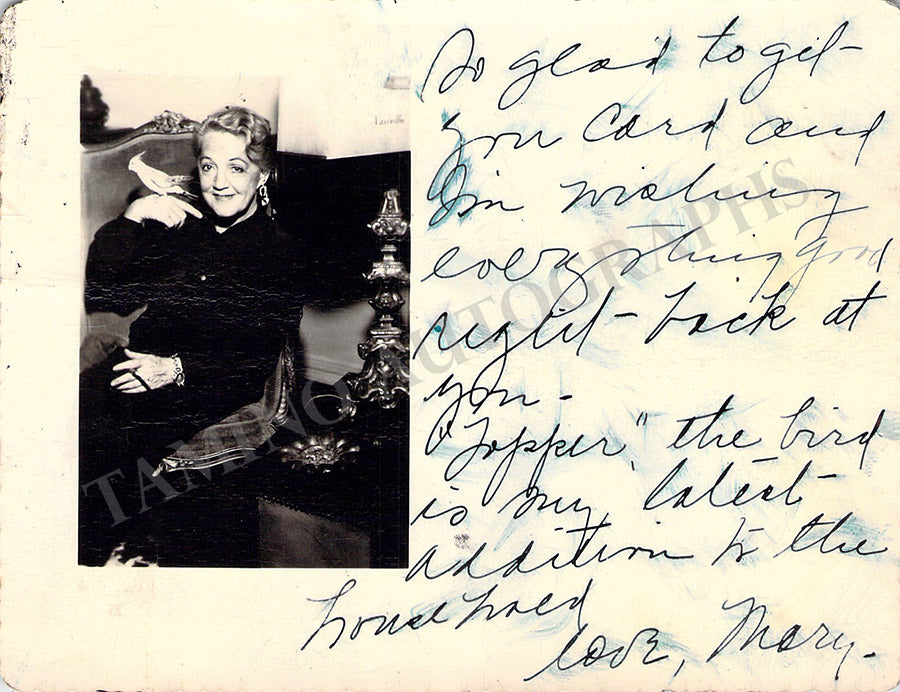 So glad to get
you card and
I'm wishing
everything good
right back at
you -
"Topper," the bird
is my latest
addition to the
household
love, Mary.
TAMINO AUTOGRAPHS